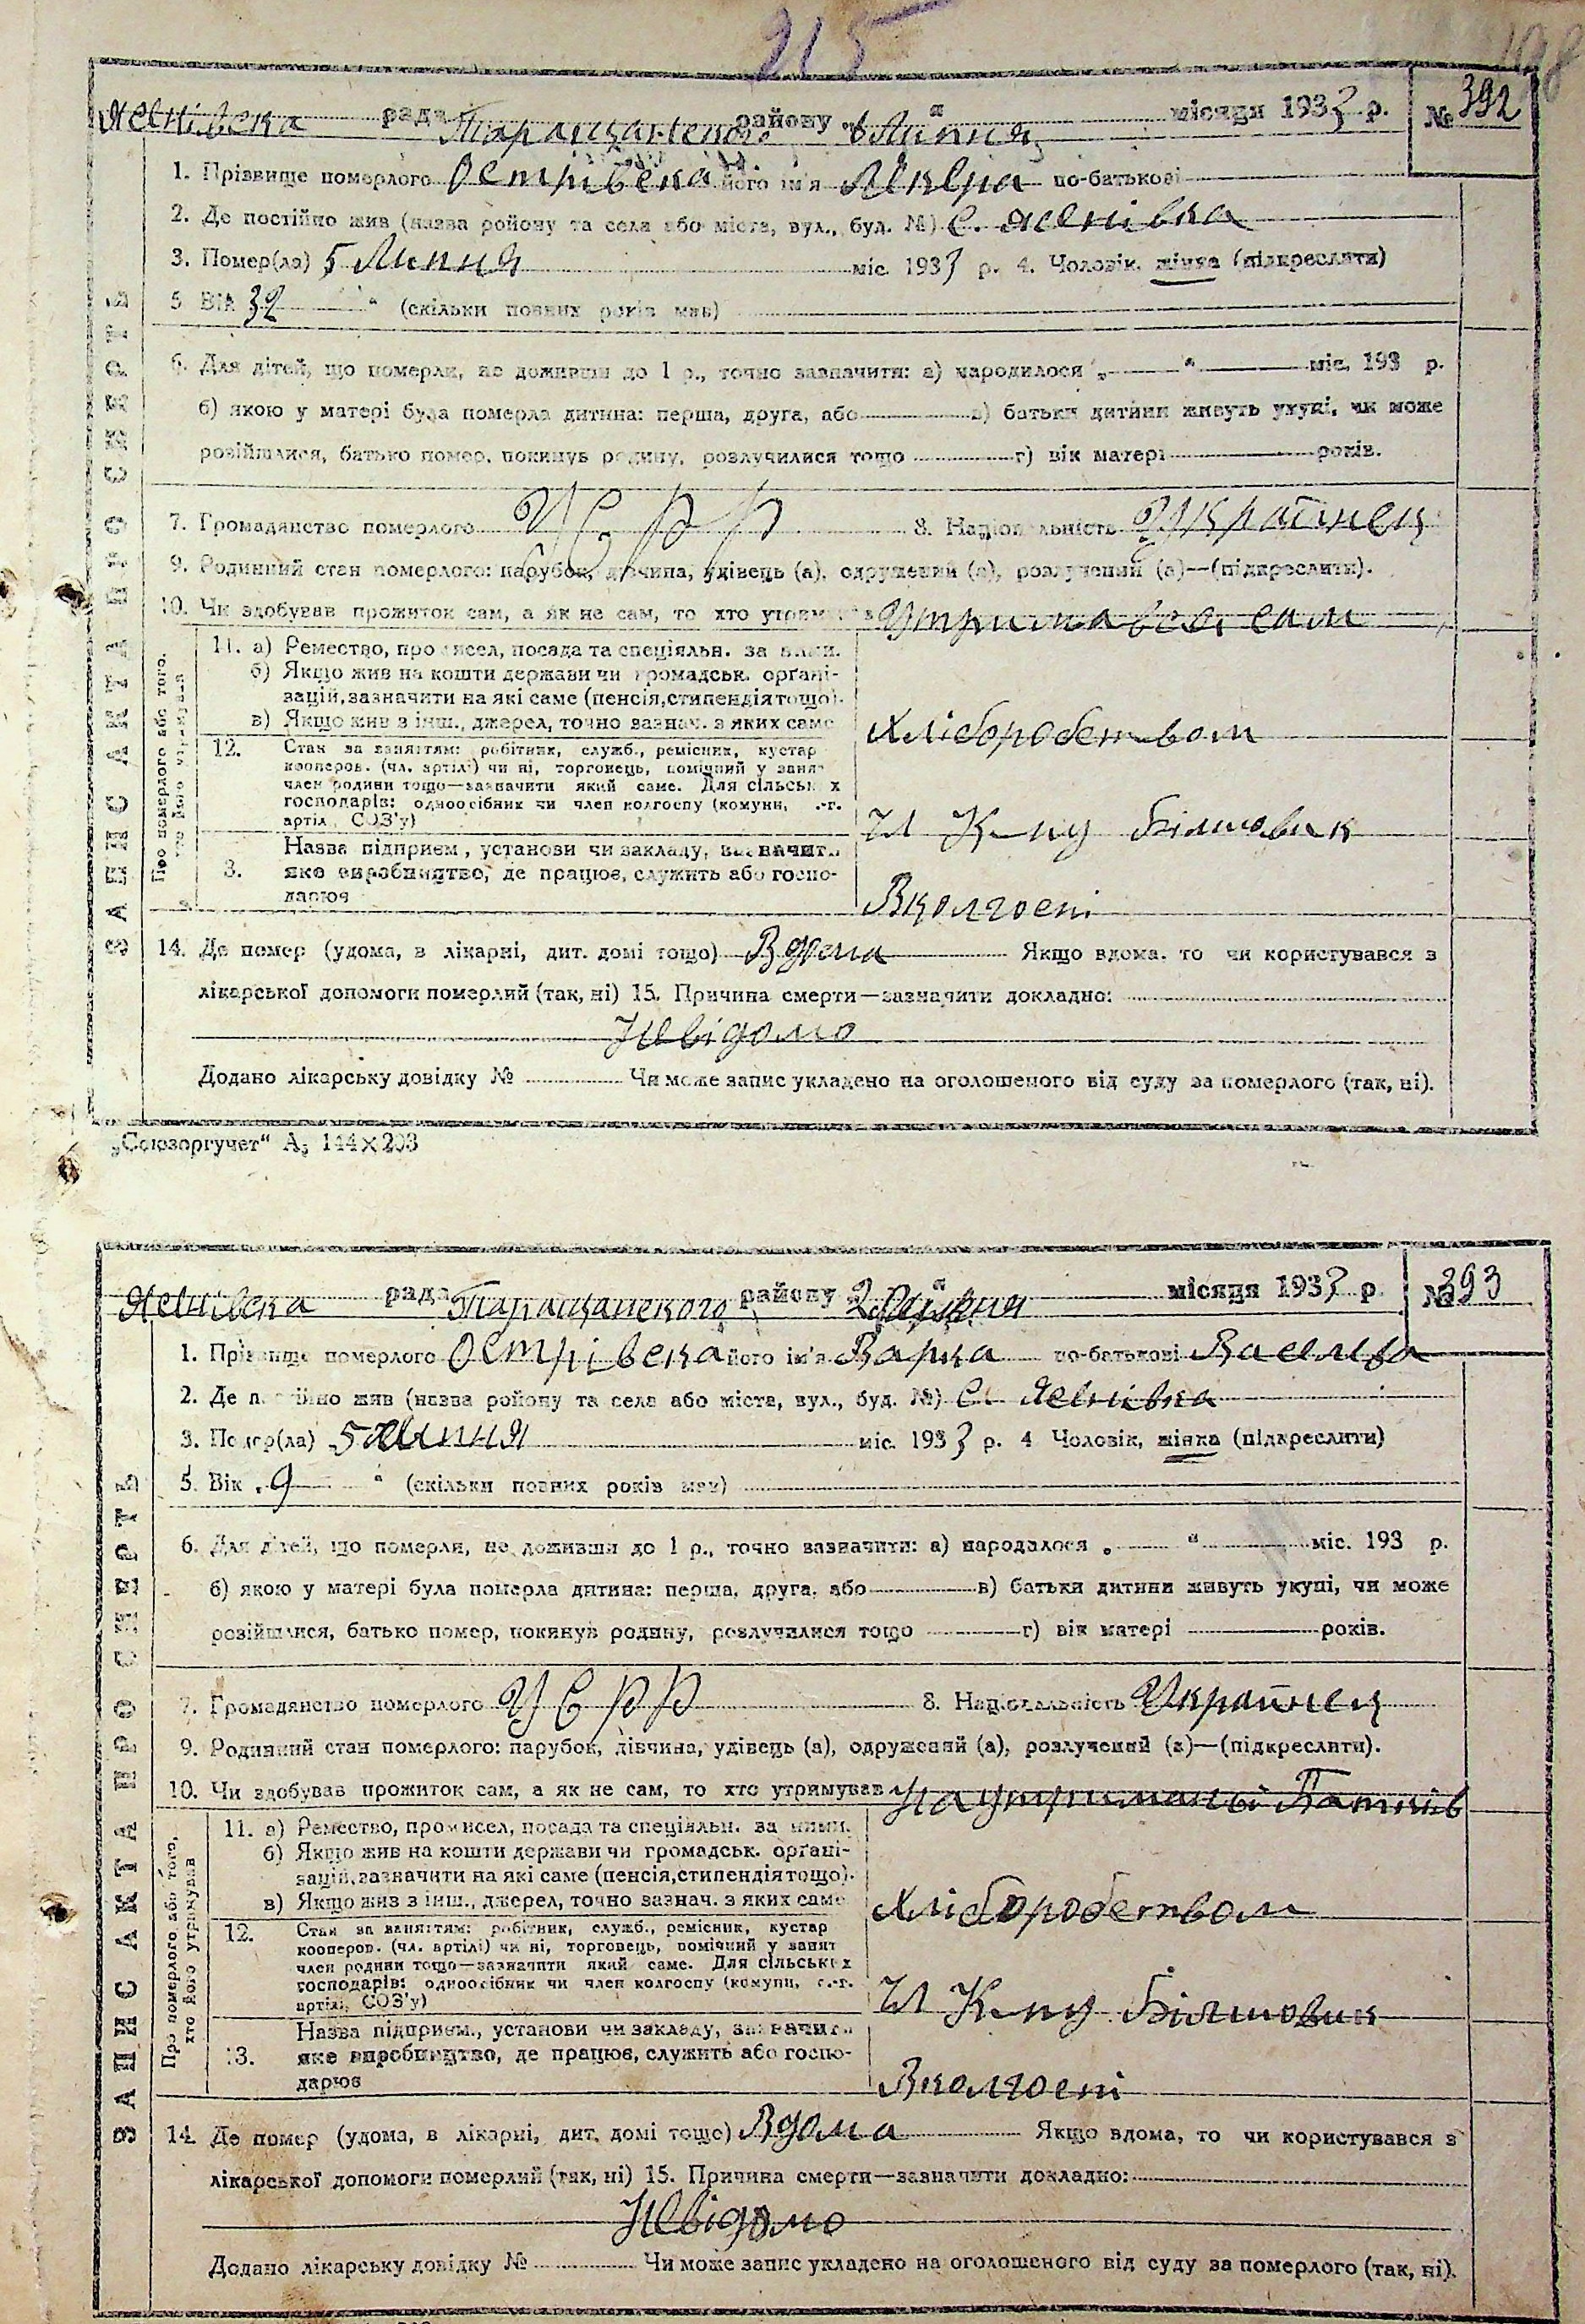 215
198
Яснівска рада Таращанского району „6 Липня“ місяця 1933 р. № 392
ЗАПИС АКТА ПРО СМЕРТЬ
1. Прізвище померлого Острівска його ім'я по-батькові
2. Де постійно жив (назва району та села або міста, вул., буд. №) с. Яснівка
3. Помер(ла) 5 Липня міс. 1933 р. 4. Чоловік, жінка (підкреслити)
5 Вік 32 “ (скільки повних років мав)
6. Для дітей, що померли, не доживши до 1 р., точно зазначити: а) народилося „ “ міс. 193 р.
б) якою у матері була померла дитина: перша, друга, або в) батьки дитини живуть укупі, чи може
розійшлися, батько помер, покинув родину, розлучилися тощо г) вік матері років.
7. Громадянство померлого УСРР 8. Національність Українец
9. Родинний стан померлого: парубок, дівчина, удівець (а), одружений (а), розлучений (а)—(підкреслити).
10. Чи здобував прожиток сам, а як не сам, то хто утримував сам
Про померлого або того,
хто його утримував
11. а) Ремество, промисел, посада та спеціяльн. за ними.
б) Якщо жив на кошти держави чи громадськ. орґані-
зацій, зазначити на які саме (пенсія, стипендія тощо).
в) Якщо жив з інш., джерел, точно зазнач. з яких саме
Хлісборобством
12. Стан за заняттям: робітник, служб., ремісник, кустар
кооперов. (чл. артілі) чи ні, торговець, помічний у занят
член родини тощо—зазначити який саме. Для сільських
господарів: одноосібник чи член колгоспу (комуни, с.-г.
артіл, СОЗ'у)
Чл К-пу Більшовик
3. Назва підприєм., установи чи закладу, зазначити
яке виробництво, де працює, служить або госпо-
дарює
Вколгоспі
14. Де помер (удома, в лікарні, дит. домі тощо) Вдома Якщо вдома, то чи користувався з
лікарської допомоги померлий (так, ні) 15. Причина смерти—зазначити докладно:
Невідомо
Додано лікарську довідку № Чи може запис укладено на оголошеного від суду за померлого (так, ні).
„Союзоргучет“ А5 144×203
Яснівска рада Таращанского району місяця 1933 р. № 393
ЗАПИС АКТА ПРО СМЕРТЬ
1. Прізвище померлого Острівска його ім'я Варка по-батькові Васильва
2. Де постійно жив (назва району та села або міста, вул., буд. №) с. Яснівка
3. Помер(ла) 5 Липня міс. 1933 р. 4 Чоловік, жінка (підкреслити)
5. Вік „9 “ (скільки повних років мав)
6. Для дітей, що померли, не доживши до 1 р., точно зазначити: а) народилося „ “ міс. 193 р.
б) якою у матері була померла дитина: перша, друга, або в) батьки дитини живуть укупі, чи може
розійшлися, батько помер, покинув родину, розлучилися тощо г) вік матері років.
7. Громадянство померлого УСРР 8. Національність Українец
9. Родинний стан померлого: парубок, дівчина, удівець (а), одружений (а), розлучений (а)—(підкреслити).
10. Чи здобував прожиток сам, а як не сам, то хто утримував На утриманьі Батьків
Про померлого або того,
хто його утримував
11. а) Ремество, промисел, посада та спеціяльн. за ними.
б) Якщо жив на кошти держави чи громадськ. орґані-
зацій, зазначити на які саме (пенсія, стипендія тощо).
в) Якщо жив з інш., джерел, точно зазнач. з яких саме
Хлісборобством
12. Стан за заняттям: робітник, служб., ремісник, кустар
кооперов. (чл. артілі) чи ні, торговець, помічний у занят
член родини тощо—зазначити який саме. Для сільських
господарів: одноосібник чи член колгоспу (комуни, с.-г.
артілі, СОЗ'у)
Чл К-пу Більшовик
13. Назва підприєм., установи чи закладу, зазначити
яке виробництво, де працює, служить або госпо-
дарює
Вколгоспі
14. Де помер (удома, в лікарні, дит. домі тощо) Вдома Якщо вдома, то чи користувався з
лікарської допомоги померлий (так, ні) 15. Причина смерти—зазначити докладно:
Невідомо
Додано лікарську довідку № Чи може запис укладено на оголошеного від суду за померлого (так, ні).